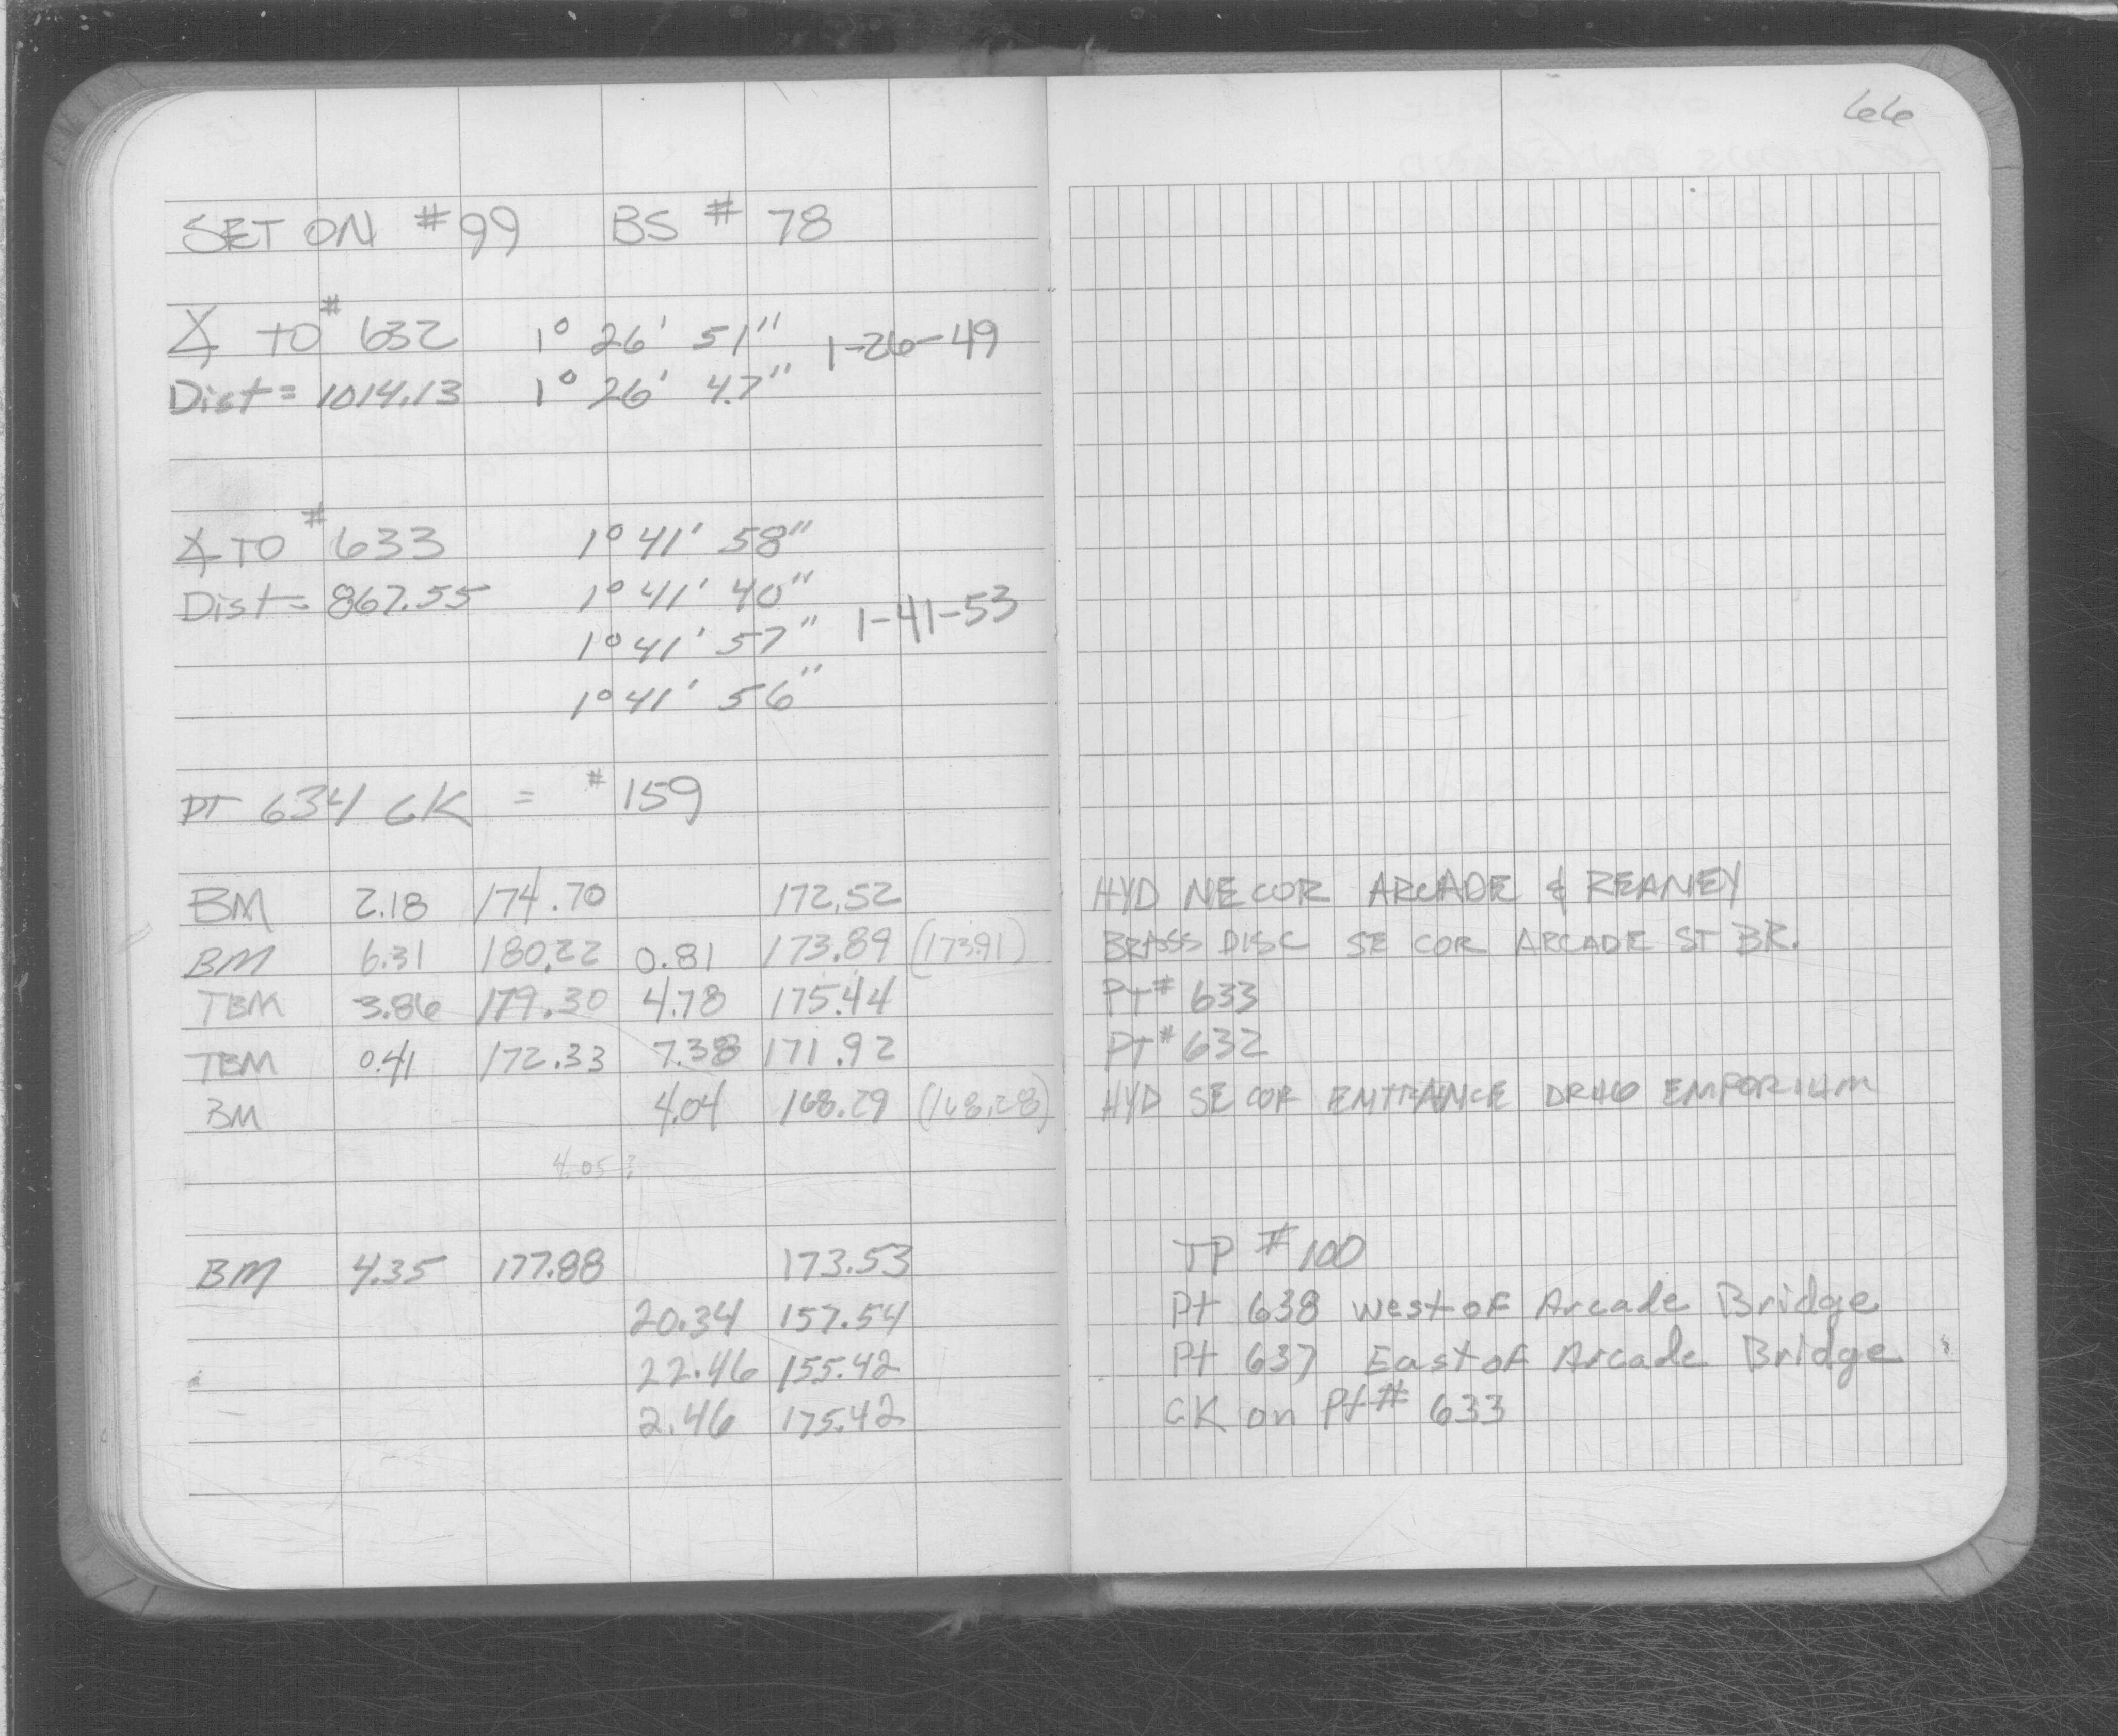 66
SET ON #99 BS # 78
∡ TO #632 1° 26' 51" 1-26-49
Dist = 1014.13 1° 26' 47"
∡ TO #633 1° 41' 58"
Dist = 867.55 1° 41' 40"
1° 41' 57" 1-41-53
1° 41' 56"
PT 634 CK = #159
BM 2.18 174.70 172.52 HYD NE COR ARCADE & REANEY
BM 6.31 180.22 0.81 173.89 (173.91) BRASS DISC SE COR ARCADE ST BR.
TBM 3.86 179.30 4.78 175.44 PT# 633
TBM 0.41 172.33 7.38 171.92 PT# 632
BM 4.04 168.29 (168.28) HYD SE COR ENTRANCE DRUG EMPORIUM
4.05 ?
BM 4.35 177.88 173.53 TP # 100
20.34 157.54 Pt 638 West of Arcade Bridge
22.46 155.42 Pt 637 East of Arcade Bridge
2.46 175.42 CK on Pt# 633